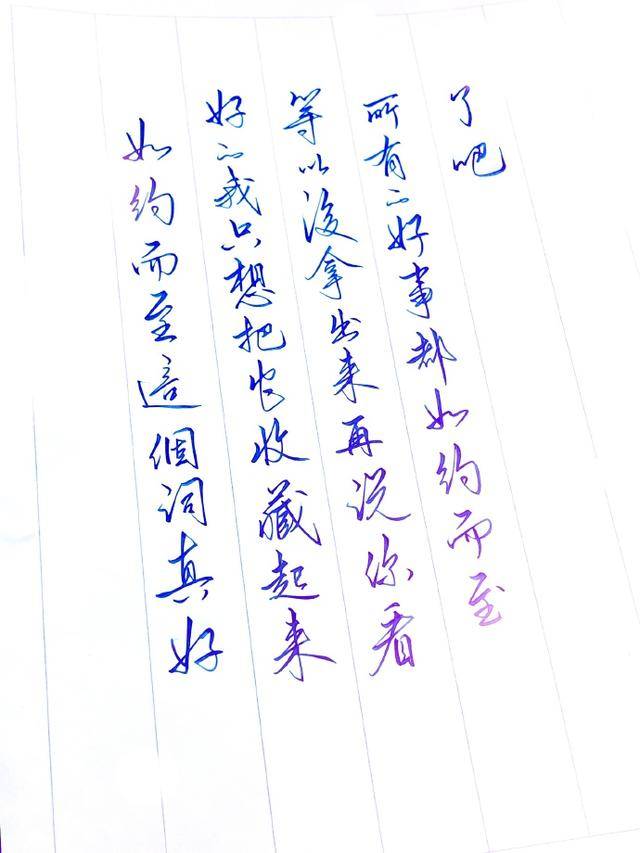 如约而至這個词真好
好的我只想把它收藏起来
等以後拿出来再说你看
所有的好事都如约而至
了吧